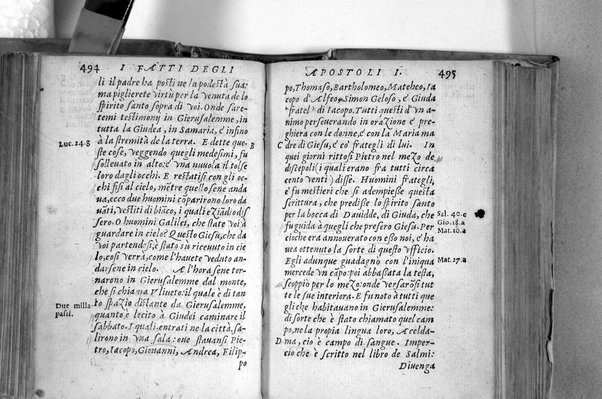 494 I FATTI DEGLI
li il padre ha posti ne la podestà sua:
ma piglierete virtù per la venuta de lo
spirito santo sopra di voi. Onde sare-
temi testimonj in Gierusalemme, in
tutta la Giudea, in Samaria, e insino
a la stremità de la terra. E dette que-
Luc. 24. g
ste cose, veggendo quegli medesimi, fu
B
solleuato in alto: e vna nuuola il tolse
loro dagli occhi. E restatisi con gli oc
chi fisi al cielo, mẽtre quello sene anda
ua, ecco due huomini cõparirono loro da
uãti, vestiti di biãco, i quali eziãdio dis
sero. O huomini Galilei, che state voi a
guardare in cielo? Questo Giesu, che da
voi partendosi, è stato sù riceuuto in cie
lo, così verrà, come l'hauete veduto an-
darsene in cielo. A l'hora sene tor-
narono in Gierusalemme dal monte,
che si chiama Vliueto: il quale è di tan
to spazio distante da Gierusalemme,
Due milla passi.
quanto è lecito à Giudei caminare il
sabbato. I quali entrati ne la città, sa-
lirono in vna sala: oue stauansi Pie-
tro, Iacopo, Giouanni, Andrea, Filip-
po
APOSTOLI I. 495
po, Thomaso, Bartholomeo, Mattheo, Ia
copo d'Alfeo, Simon Geloso, e Giuda
fratel di Iacopo. Tutti questi d'vn a-
nimo perseuerando in orazione e pre-
ghiera con le donne, e con la Maria ma
C
dre di Giesu, e co' frategli di lui. In
quei giorni rittosi Pietro nel mezo de
discepoli (i quali erano fra tutti circa
cento venti) disse. Huomini frategli,
è fu mestieri che si adempiesse questa
scrittura, che predisse lo spirito santo
per la bocca di Dauidde, di Giuda, che
Sal. 40. e
fu guida à quegli che presero Giesu. Per
Gio. 18. a
cioche era annouerato con esso noi, e ha
Mat. 10. a
ueua ottenuto la sorte di questo vfficio.
Egli adunque guadagnò con l'iniqua
Mat. 27. a
mercede vn cãpo: poi abbassata la testa,
scoppio per lo mezo: onde versarõsi tut
te le sue interiora. E fu noto à tutti que
gli che habitauano in Gierusalemme:
di sorte che è stato chiamato quel cam
po, ne la propia lingua loro, Acelda-
D
ma, cio è campo di sangue. Imper-
cio che è scritto nel libro de Salmi:
Diuenga